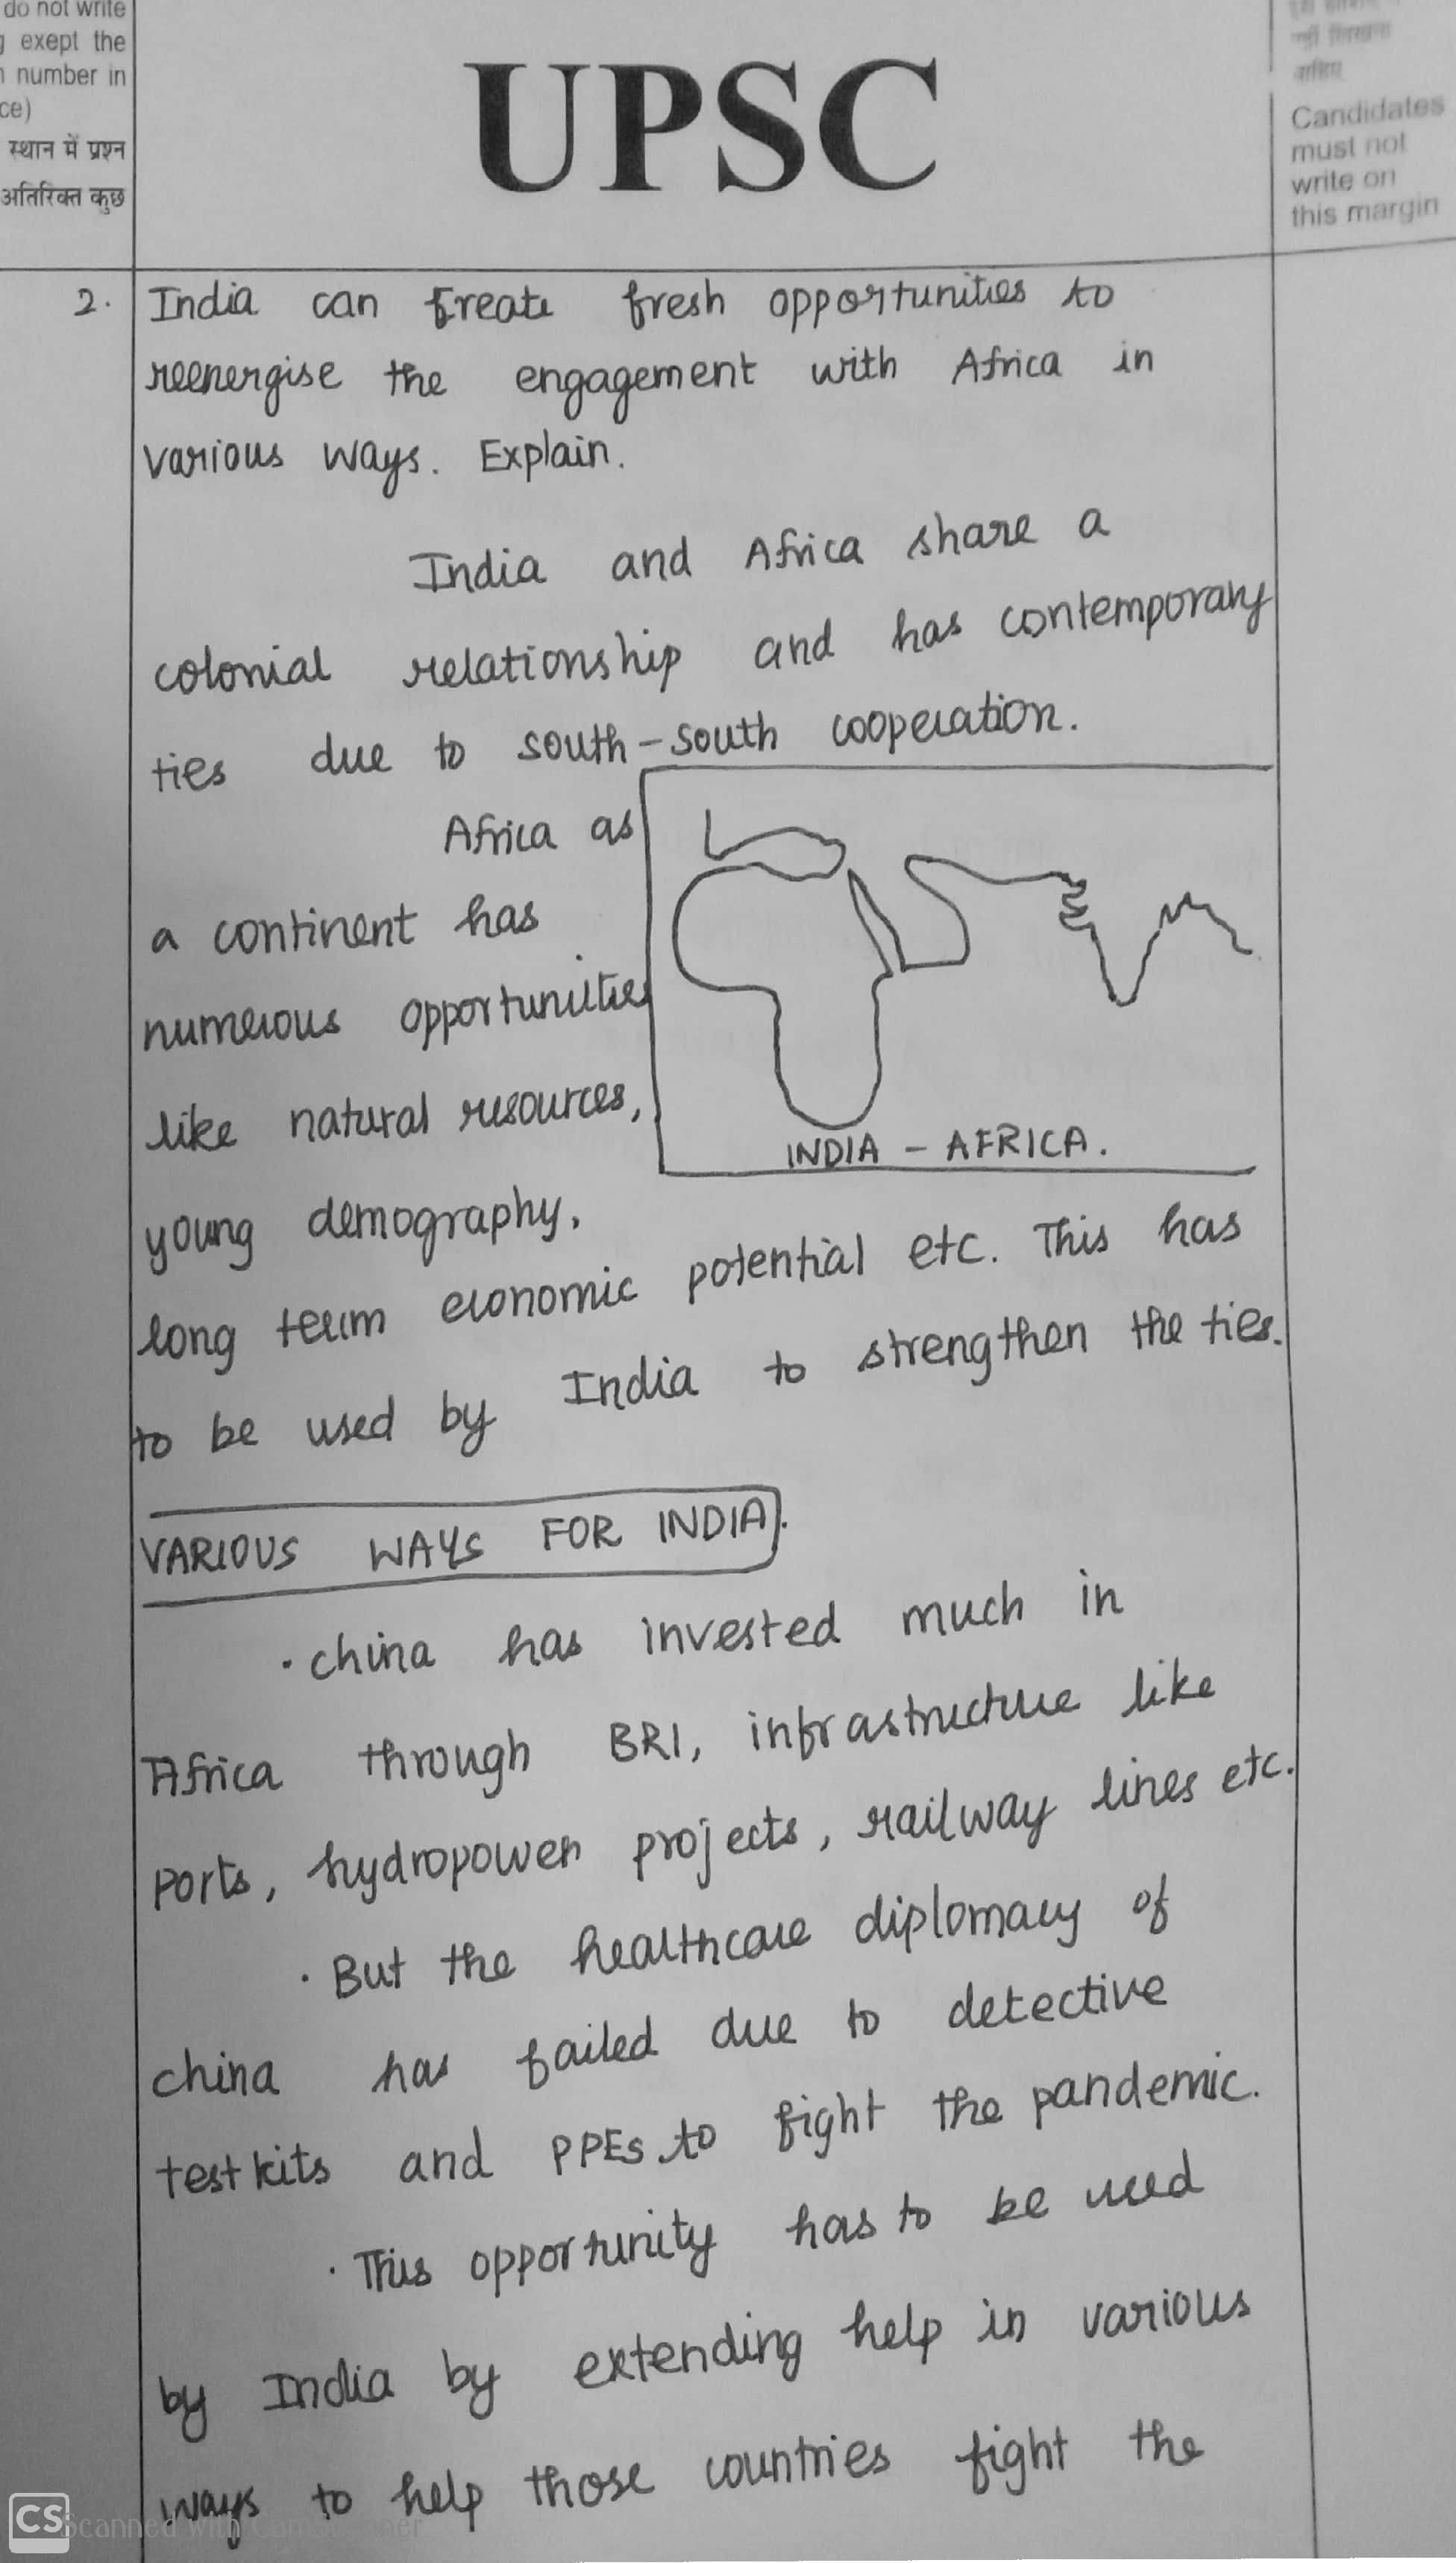 do not write
exept the
number in
ce)
स्थान में प्रश्न
अतिरिक्त कुछ
UPSC
नहीं लिखना
चाहिए
Candidates
must not
write on
this margin
2. India can create fresh opportunities to
reenergise the engagement with Africa in
various ways. Explain.
India and Africa share a
colonial relationship and has contemporary
ties due to south-south cooperation.
Africa as
a continent has
numerous opportunities
like natural resources,
young demography,
INDIA - AFRICA.
long term economic potential etc. This has
to be used by India to strengthen the ties.
VARIOUS WAYS FOR INDIA.
· China has invested much in
Africa through BRI, infrastructure like
ports, hydropower projects, railway lines etc.
· But the healthcare diplomacy of
china has failed due to detective
testkits and PPEs to fight the pandemic.
· This opportunity has to be used
by India by extending help in various
ways to help those countries fight the
CS Scanned with CamScanner